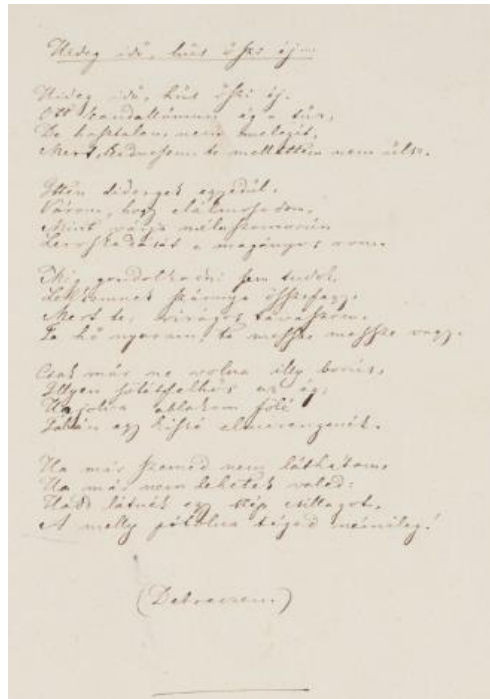 Hideg idő, hűs őszi éj...
Hideg idő, hűs őszi éj.
Ott kandallómnn ég a tűz,
De hasztalan, nem melegít,
Mert, kedvesem, te mellettem nem ülsz.
Itten didergek egyedűl.
Várom, hogy elálmosodom,
Mint várja mélaszomorún
Leroskadását a magányos rom.
Még gondolkodni sem tudok,
Lelkemnek szárnya összefagy,
Mert te, virágos tavaszom,
Te hő nyaram, te messze, messze vagy.
Csak már ne volna illy borús,
Illyen sötétfelhős az ég,
Ha jőne ablakom fölé
Talán egy kissé elmerengenék.
Ha már szemed nem láthatom,
Ha már nem lehetek veled:
Hadd látnék egy szép csillagot,
A melly pótolna téged némileg!
(Debreczen.)